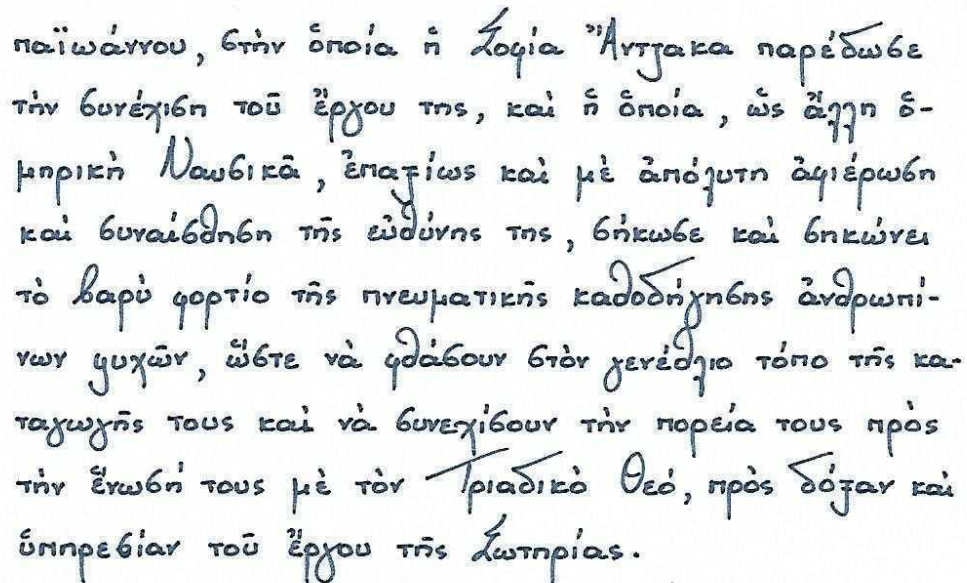 παϊωάννου, στὴν ὁποία ἡ Σοφία Ἄντζακα παρέδωσε
τὴν συνέχιση τοῦ ἔργου της, καὶ ἡ ὁποία, ὡς ἄλλη ὁ-
μηρικὴ Ναυσικᾶ, ἐπαξίως καὶ μὲ ἀπόλυτη ἀφιέρωση
καὶ συναίσθηση τῆς εὐθύνης της, σήκωσε καὶ σηκώνει
τὸ βαρὺ φορτίο τῆς πνευματικῆς καθοδήγησης ἀνθρωπί-
νων ψυχῶν, ὥστε νὰ φθάσουν στὸν γενέθλιο τόπο τῆς κα-
ταγωγῆς τους καὶ νὰ συνεχίσουν τὴν πορεία τους πρὸς
τὴν ἕνωσή τους μὲ τὸν Τριαδικὸ Θεό, πρὸς δόξαν καὶ
ὑπηρεσίαν τοῦ ἔργου τῆς Σωτηρίας.